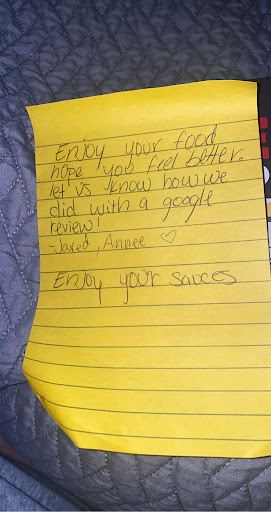 Enjoy your food
hope you feel better.
let us know how we
did with a google
review!
-Jared, Annee ♡
Enjoy your sauces